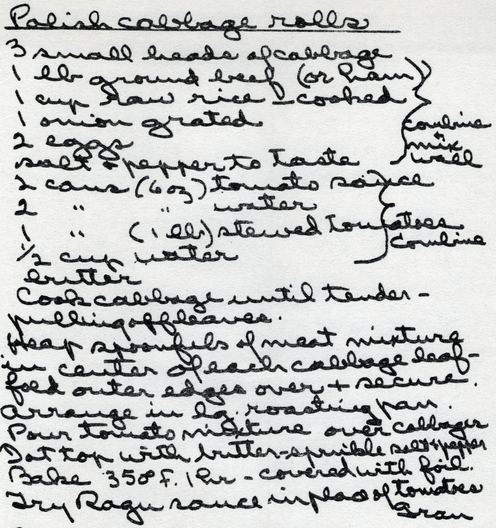 Polish cabbage rolls
3 small heads of cabbage
1 lb ground beef (or ham)
1 cup raw rice - cooked
1 onion grated
2 eggs
salt + pepper to taste
combine
mix
well
2 cans (6 oz) tomato sauce
2 " " water
1 " (1 lb) stewed tomatoes
1/2 cup water
combine
butter
Cook cabbage until tender -
pulling off leaves.
Heap spoonfuls of meat mixture
in center of each cabbage leaf -
fold outer edges over + secure.
Arrange in lg. roasting pan.
Pour tomato mixture over cabbages
Dot top with butter - sprinkle salt + pepper
Bake 350° F. 1 hr - covered with foil.
Try Ragu sauce in place of tomatoes
Gran